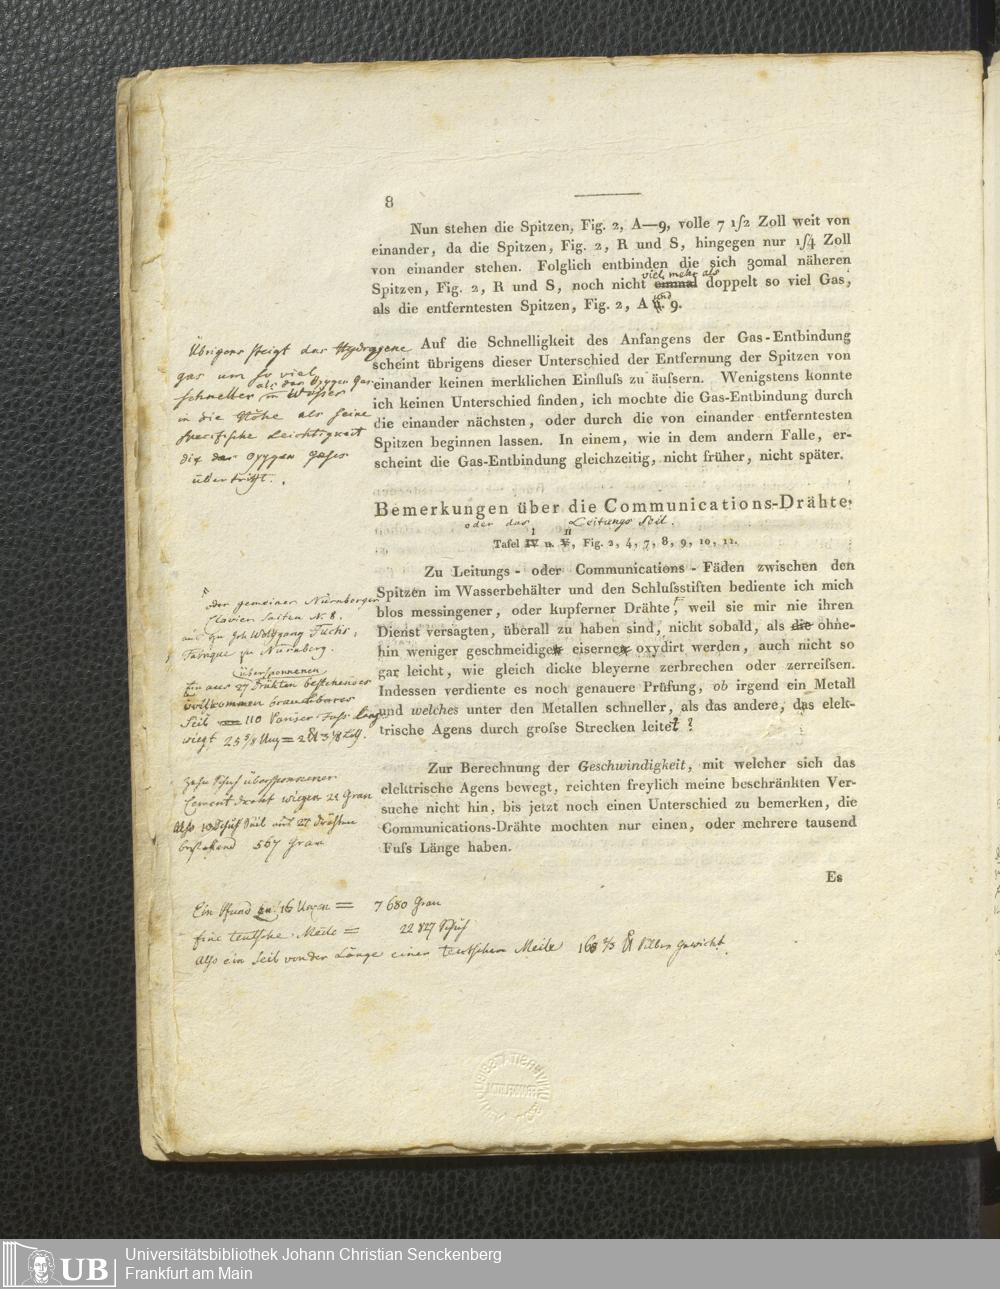 8
Nun stehen die Spitzen, Fig. 2, A—9, volle 7 1/2 Zoll weit von
einander, da die Spitzen, Fig. 2, R und S, hingegen nur 1/4 Zoll
von einander stehen. Folglich entbinden die sich 30mal näheren
viel mehr als
Spitzen, Fig. 2, R und S, noch nicht einmal doppelt so viel Gas,
und
als die entferntesten Spitzen, Fig. 2, A u. 9.
Übrigens steigt das Hydrogene
gas um so viel
schneller im Wasser
als das Oxygen Gas
in die Höhe als seine
specifische Leichtigkeit
die des Oxygen Gases
übertrifft.
Auf die Schnelligkeit des Anfangens der Gas-Entbindung
scheint übrigens dieser Unterschied der Entfernung der Spitzen von
einander keinen merklichen Einfluſs zu äuſsern. Wenigstens konnte
ich keinen Unterschied finden, ich mochte die Gas-Entbindung durch
die einander nächsten, oder durch die von einander entferntesten
Spitzen beginnen lassen. In einem, wie in dem andern Falle, er-
scheint die Gas-Entbindung gleichzeitig, nicht früher, nicht später.
Bemerkungen über die Communications-Drähte
oder das Leitungs Seil.
I II
Tafel IV u. V, Fig. 2, 4, 7, 8, 9, 10, 11.
Zu Leitungs- oder Communications-Fäden zwischen den
Spitzen im Wasserbehälter und den Schluſsstiften bediente ich mich
blos messingener, oder kupferner Drähte, weil sie mir nie ihren
Dienst versagten, überall zu haben sind, nicht sobald, als die ohne-
hin weniger geschmeidigen eisernen oxydirt werden, auch nicht so
gar leicht, wie gleich dicke bleyerne zerbrechen oder zerreiſsen.
Indessen verdiente es noch genauere Prüfung, ob irgend ein Metall
und welches unter den Metallen schneller, als das andere, das elek-
trische Agens durch groſse Strecken leitet?
der gemeinen Nürnberger
Clavier Saiten N. 8.
aus Joh. Wolfgang Fuchs,
Fabrique zu Nürnberg.
übersponnenen
Ein aus 27 Dräkten bestehendes
vollkommen brauchbares
Seil 110 Pariser Fuss lang
wiegt 25 5/8 Unz =
Zehn Schuh übersponnener
Cement drakt wiegen 21 Gran
Also 10 Schuh Seil aus 27 Drähten
bestehend 567 Gran
Zur Berechnung der Geschwindigkeit, mit welcher sich das
elektrische Agens bewegt, reichten freylich meine beschränkten Ver-
suche nicht hin, bis jetzt noch einen Unterschied zu bemerken, die
Communications-Drähte mochten nur einen, oder mehrere tausend
Fuſs Länge haben.
Es
Ein Pfund zu 16 Unzen = 7680 Gran
Eine teutsche Meile = 22 827 Schuh
Also ein Seil von der Länge einer teutschen Meile 168 2/3 ℔ Silber gewicht.
Universitätsbibliothek Johann Christian Senckenberg
Frankfurt am Main
UB